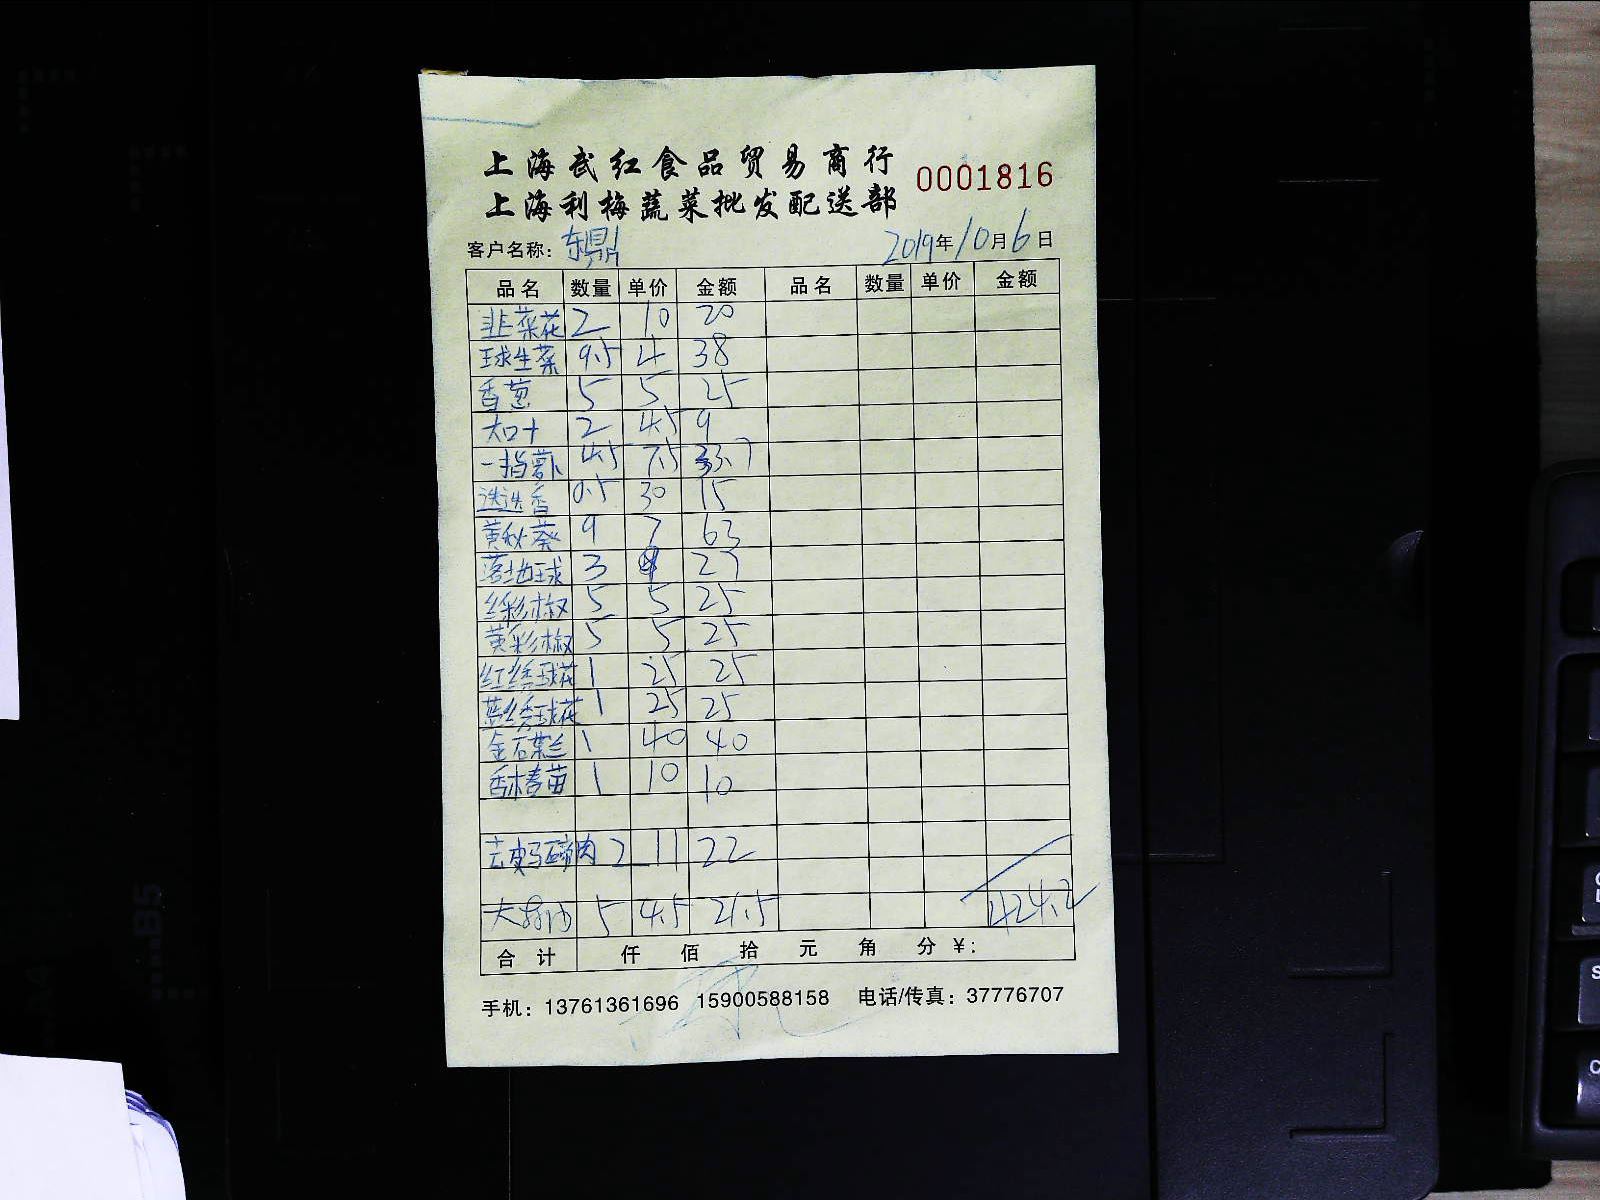 上海武红食品贸易商行
0001816
上海利梅蔬菜批发配送部
客户名称：东鼎 2019年10月6日
品名 数量 单价 金额 品名 数量 单价 金额
韭菜花 2 10 20
球生菜 9.5 4 38
香葱 5 5 25
大口十 2 4.5 9
一指萝卜 4.5 7.5 33.7
迭迭香 0.5 30 15
黄秋葵 9 7 63
落地球 3 9 27
红彩椒 5 5 25
黄彩椒 5 5 25
红绣球花 1 25 25
黄绣球花 1 25 25
金石斛兰 1 40 40
香椿苗 1 10 10
去皮马蹄肉 2 11 22
5 4.5 21.5 424.2
合计 仟 佰 拾 元 角 分 ￥：
手机：13761361696 15900588158 电话/传真：37776707
B5
A4